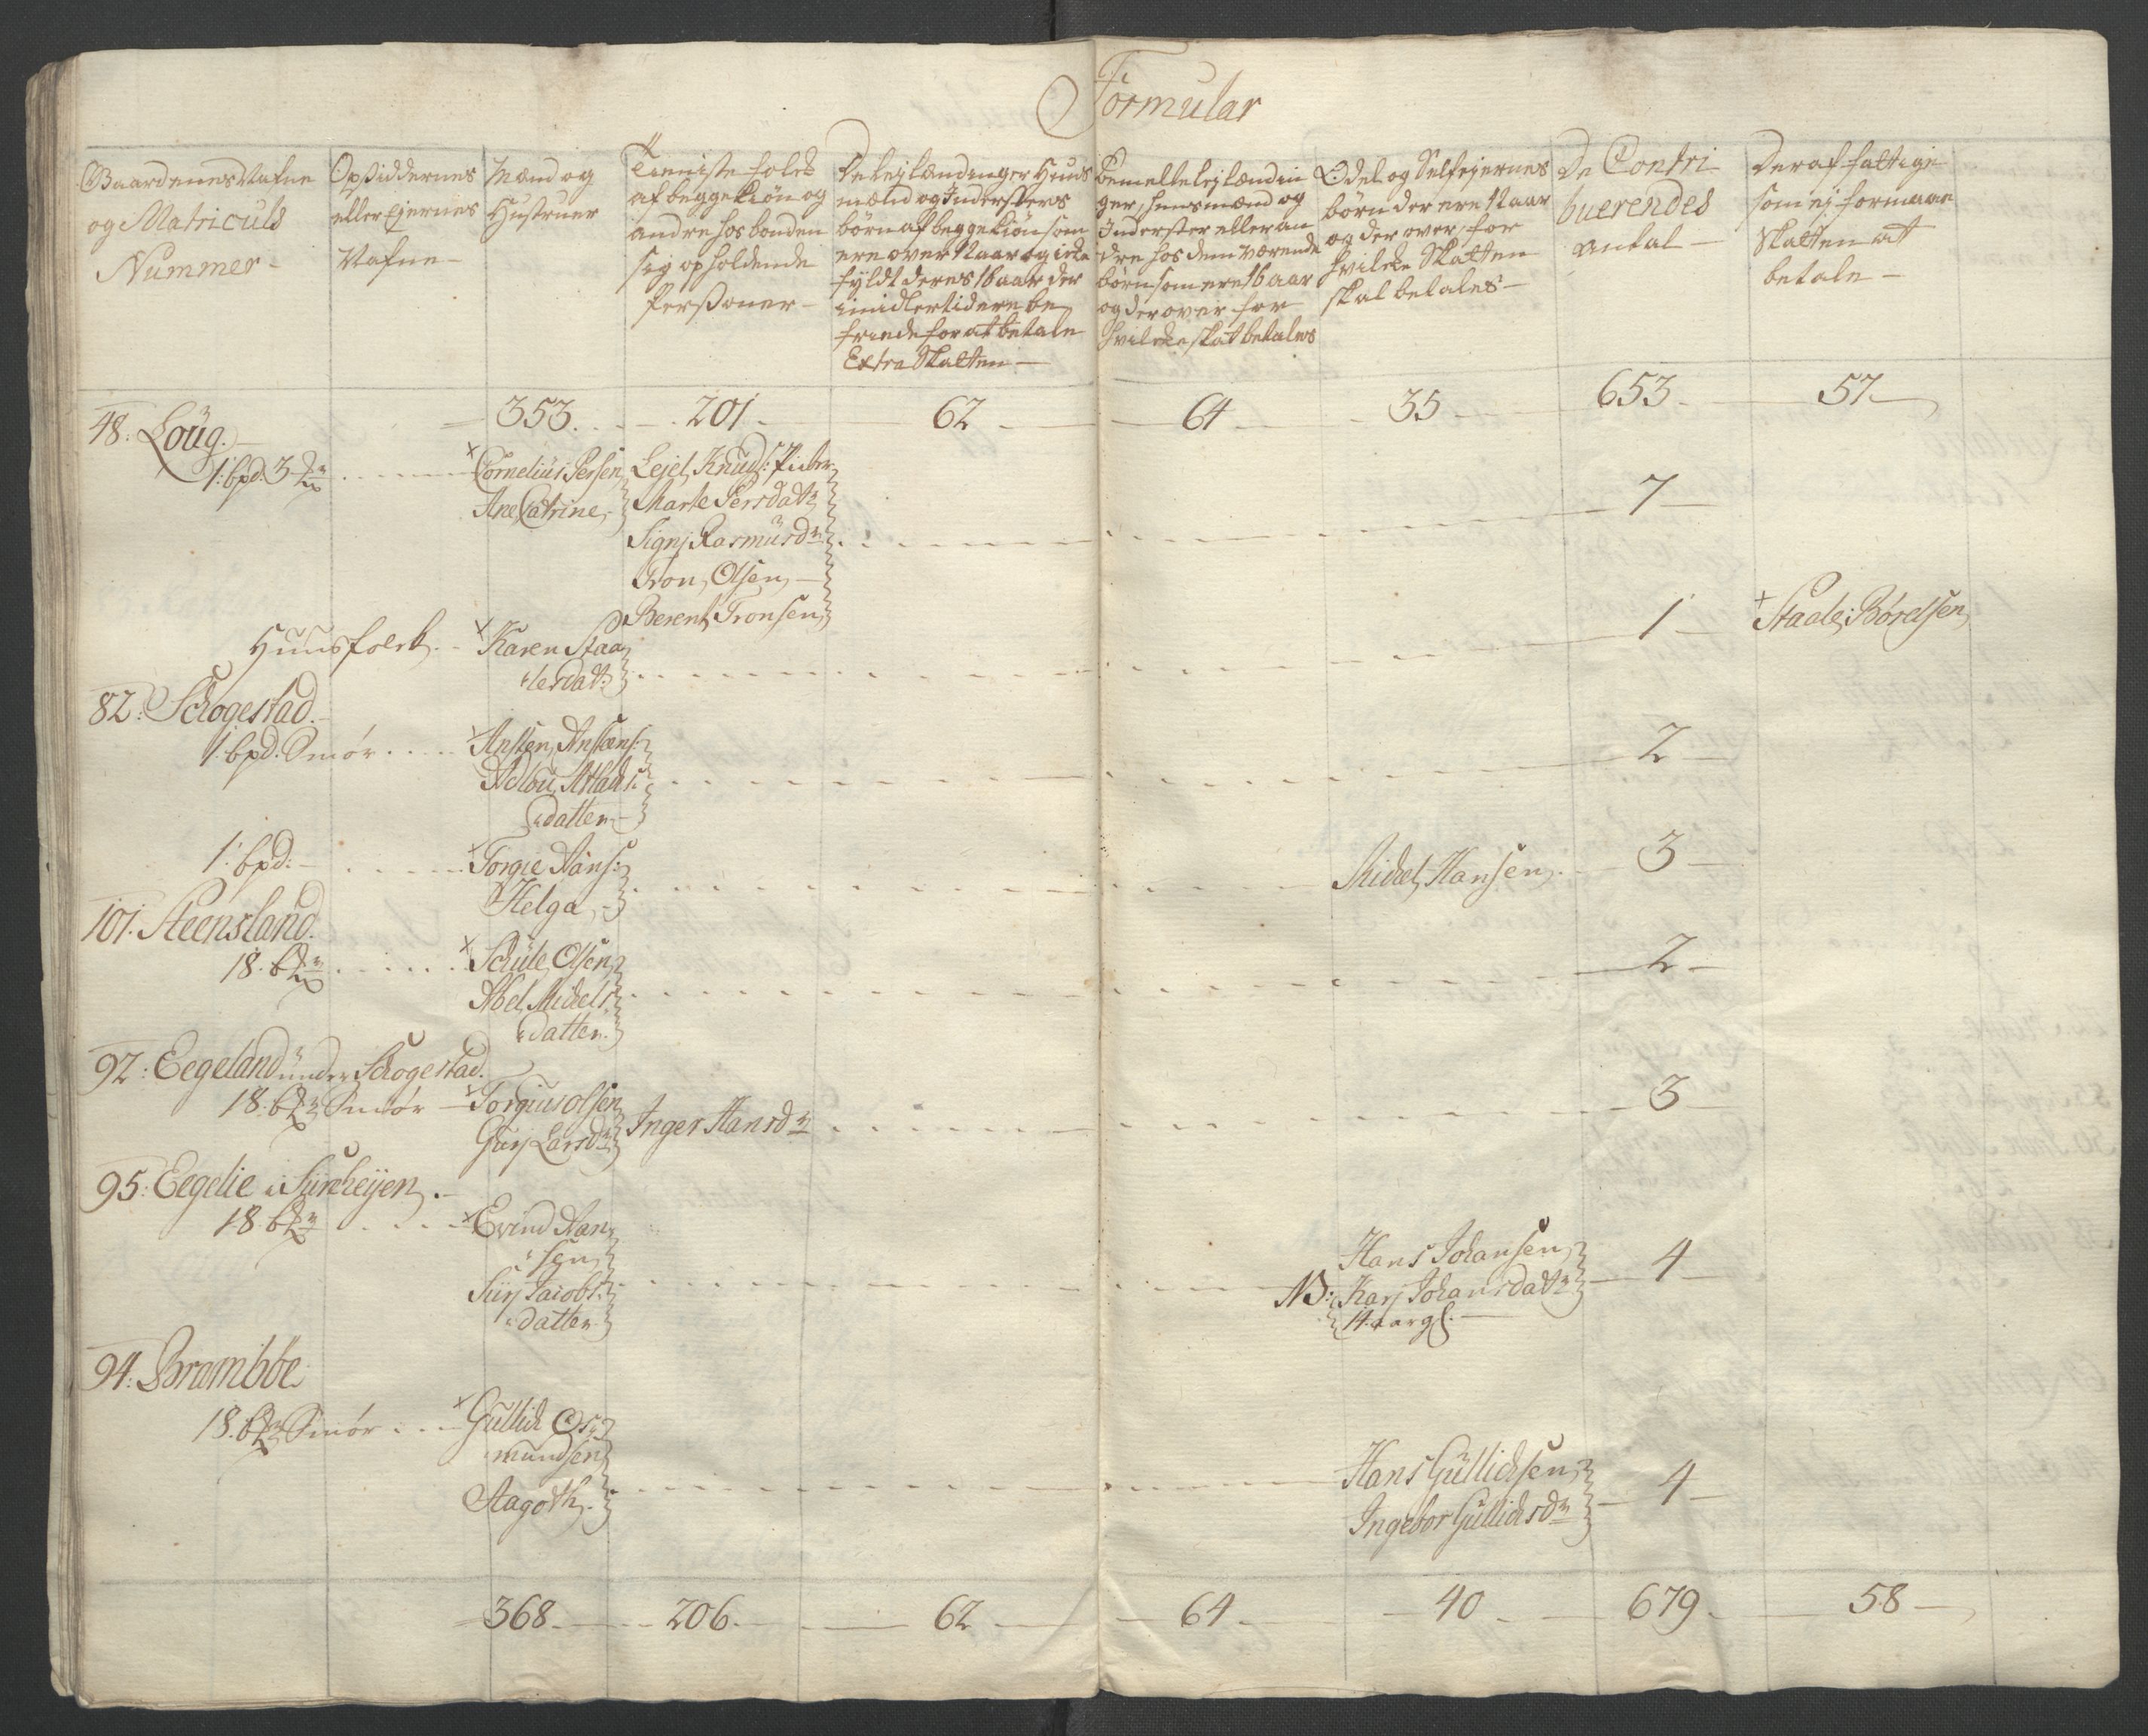 Formular
Gaardenes Nafne
og Matriculs
Nummer -
Opsiddernes
eller Ejernes
Nafne -
Mænd og
Hustruer
Tieniste folck
af begge Kiøn og
andre hos bonden
sig opholdende
Persohner -
De lejlændinger Huus
mænd og Indersters
børn af begge Kiøn som
ere over 12 aar og icke
fyldt deres 16 aar der
imidlertid ere be
friede for at betale
Extra Skatten -
bemelte lejlændin
ger, huusmænd og
Inderster eller an
dre hos dem værende
børn som ere 16 aar
og derover for
hvilcke skat betales
Odel og Selfejernes
børn der ere 12 aar
og der over, for
hvilcke Skatten
skal betales -
De Contri
buerendes
antal -
Deraf fattige
som ej formaar
Skatten at
betale -
353. 201 62 64 35 653 57
48. Løug.
1. bpd. 3
Cornelius Persen
Ane Catrine
Lejel Knuds:
Marte Persdatr
Signj Rasmusdr
Tron Olsen
Berent Tronsen
7
Huusfolck
Karen Staa
lesdatr
1
Staale Børelsen
82: Schogestad.
1. bpd. Smør
Ansten Anstens:
Adlou Atlads:
datter
2
1. bpd:
Torgie Hans:
Helga
Michel Hansen
3
101. Steensland.
18.
Schule Olsen
Abel Michels
datter.
2
92: Eegeland under Schogestad.
18. Smør
Torgius Olsen
Gurj Larsdr
Inger Hansdr
3
95: Eegelie i Siireheijen.
18.
Evind Han
sen
Siirj Jacobs:
datter
Hans Johansen
NB: Karj Johansdatr
14. aar gl.
4
94: Brambøe
18. Smør
Gullich Os
mundsen
Aagoth.
Hans Gullichsen
Ingebor Gullichsdr
4
368. 206. 62 64 40 679 58